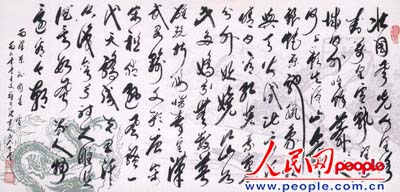 北国风光千里冰
封万里雪飘望长
城内外惟余莽莽
大河上下顿失滔滔山舞
银蛇原驰蜡象欲
与天公试比高须
晴日看红装素裹
分外妖娆江山如
此多娇引无数英
雄竞折腰惜秦皇汉
武略输文采唐宗
宋祖稍逊风骚一
代天骄成吉思汗
只识弯弓射大雕俱
往矣数风流人物
还看今朝
人民网
people.com.cn